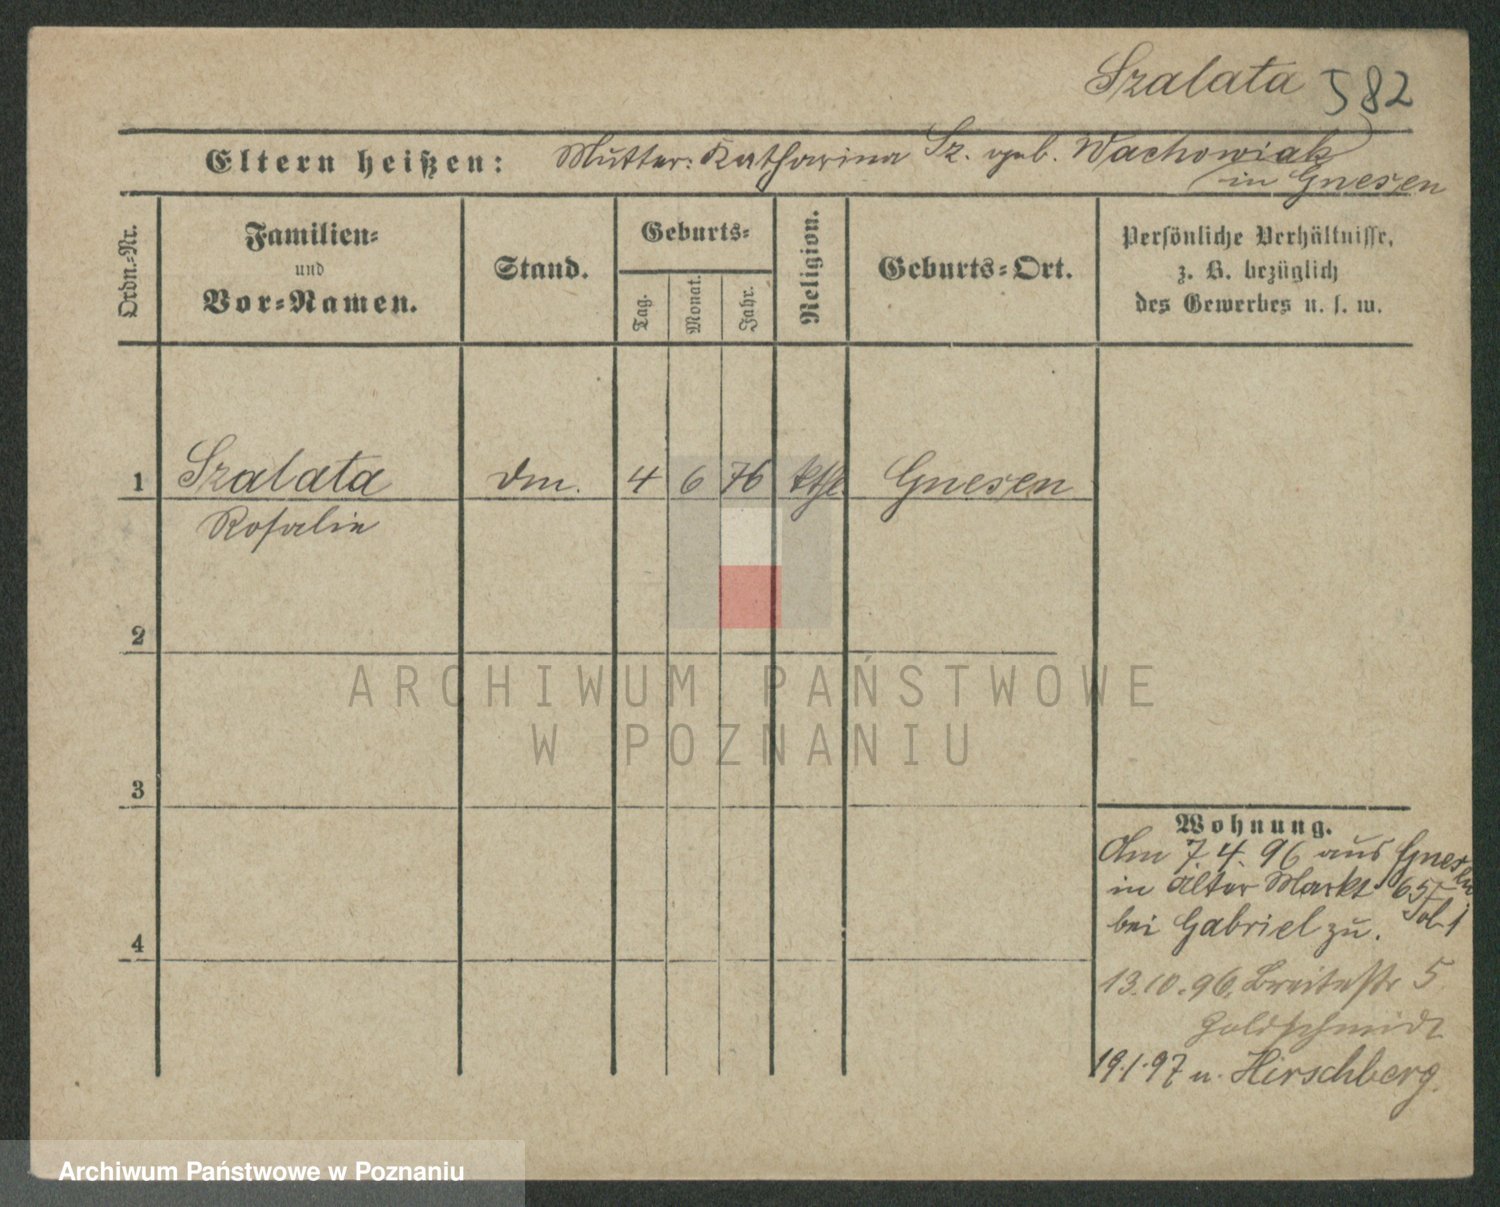 Szalata 582
Eltern heißen: Mutter: Katharina Sz. geb. Wachowiak
in Gnesen
Ordn.-Nr.
Familien- und Vor-Namen.
Stand.
Geburts-
Tag.
Monat.
Jahr.
Religion.
Geburts-Ort.
Persönliche Verhältnisse,
z. B. bezüglich
des Gewerbes u. s. w.
1 Szalata dm. 4 6 76 kth. Gnesen
Rosalie
2
3
4
Wohnung.
Am 7. 4. 96 aus Gnesen
in Alter Markt 65/
bei Gabriel zu.
13.10.96. Breitestr 5
Goldschmidt
19.1.97 n. Hirschberg.
ARCHIWUM PAŃSTWOWE
W POZNANIU
Archiwum Państwowe w Poznaniu